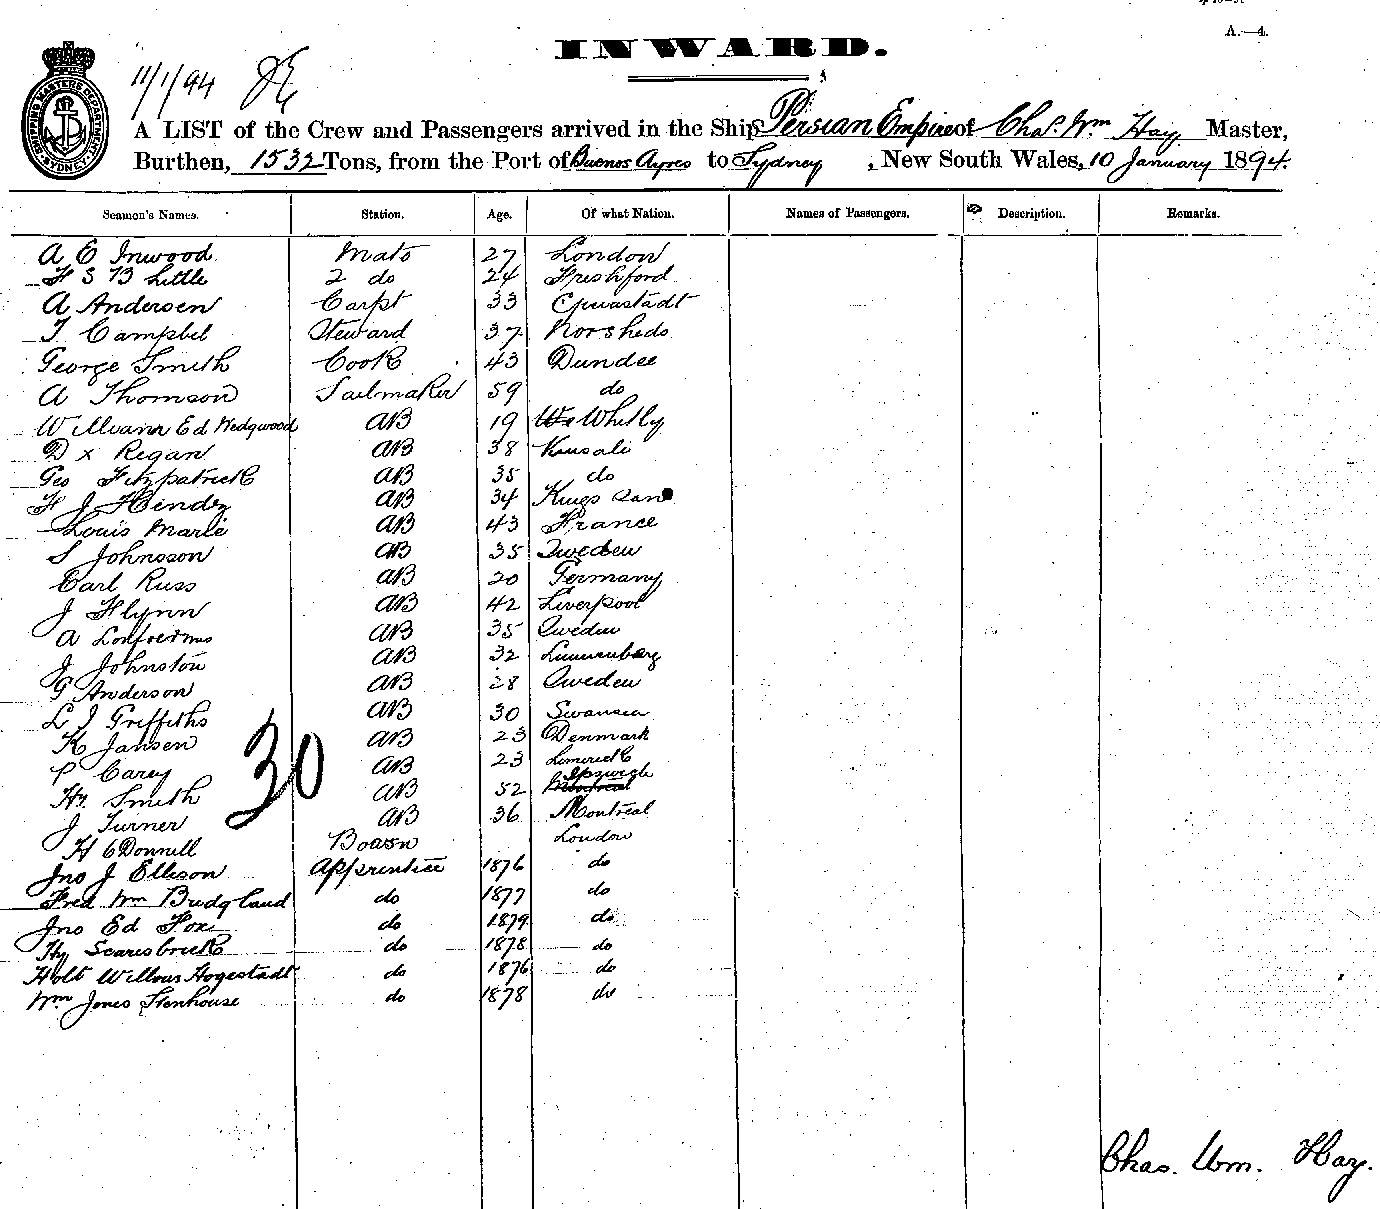 A.—4.
INWARD.
11/1/94
SHIPPING MASTERS DEPARTMENT SYDNEY
A LIST of the Crew and Passengers arrived in the Ship Persian Empire of Chas. Wm Hay Master,
Burthen, 1532 Tons, from the Port of Buenos Ayres to Sydney, New South Wales, 10 January 1894.
Seamen's Names. Station. Age. Of what Nation. Names of Passengers. Description. Remarks.
A E Inwood Mate 27 London
F S B Little 2 do 24 Freshford
A Andersen Carpt 33
T Campbel Steward 37
George Smith Cook 43 Dundee
A Thomson Sailmaker 59 do
Ed Wedgwood AB 19 Whitby
D x Regan AB 38 Kinsale
Geo Fitzpatrick AB 35 do
F J AB 34 Kings
Louis Marie AB 43 France
S Johnsson AB 35 Sweden
Carl Russ AB 20 Germany
J Flynn AB 42 Liverpool
A AB 35 Sweden
J Johnston AB 32 Lunenberg
G Anderson AB 28 Sweden
L J Griffiths AB 30 Swansea
K Jansen AB 23 Denmark
P Carey AB 23 Limerick
Hy. Smith AB 52 Ipswich
J Turner AB 36 Montreal
30
H O'Donnell Boasn London
Jno J Elleson Apprentice 1876 do
Fred Wm Budgland do 1877 do
Jno Ed Fox do 1879 do
Hy Scaresbrick do 1878 do
Holt Hogestadt do 1876 do
Wm Jones Stenhouse do 1878 do
Chas. Wm. Hay.